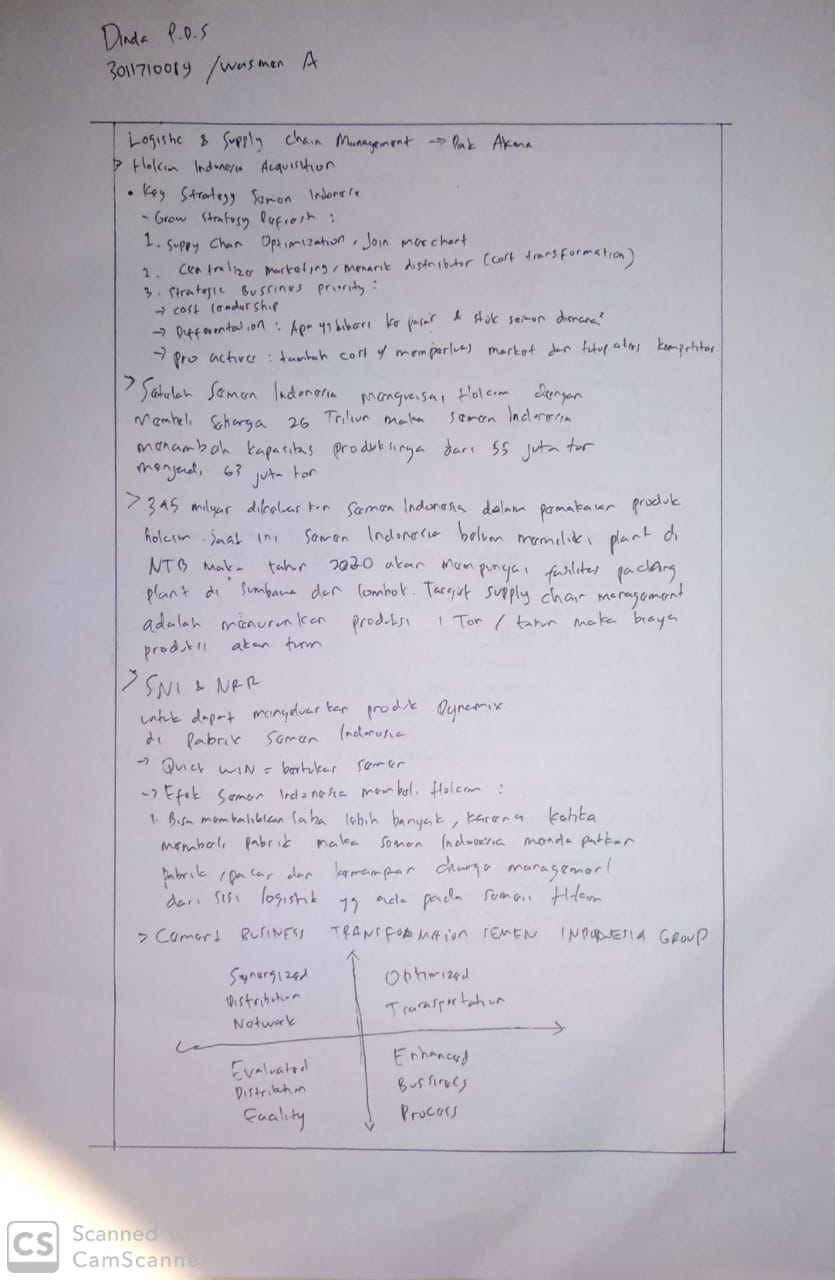 Dinda P.D.S
3011710019 / Wasmen A
Logistic & Supply Chain Management → Pak Akma
> Holcim Indonesia Acquisition
• Key Strategy Semen Indonesia
- Grow Strategy Refresh :
1. Suppy Chan Optimization, Join merchant
2. Centralize marketing, menarik distributor (cost transformation)
3. Strategic Bussines priority :
→ cost leadership
→ Differentation : Apa yg diberi ke pasar & stok semen dimana²
→ pro active : tambah cost u/ memperluas market dan tutup akses kompetitor
> Setelah Semen Indonesia menguasai Holcim dengan
membeli seharga 26 Triliun maka Semen Indonesia
menambah kapasitas produksinya dari 55 juta ton
menjadi 63 juta ton
> 345 milyar dikeluarkan Semen Indonesia dalam pemakaian produk
holcim. Saat ini Semen Indonesia belum memiliki plant di
NTB maka tahun 2020 akan mempunyai fasilitas packing
plant di Sumbawa dan Lombok. Target supply chain management
adalah menurunkan produksi 1 Ton / tahun maka biaya
produksi akan turun
> SNI &
untuk dapat mengeluarkan produk Dynamix
di Pabrik Semen Indonesia
→ Quick WIN = bertukar semen
→ Efek Semen Indonesia membeli Holcim :
1. Bisa membalikkan laba lebih banyak, karena ketika
membeli pabrik maka Semen Indonesia mendapatkan
pabrik, pasar dan kemampuan change management
dari sisi logistik yg ada pada semen Holcim
> Cement BUSINESS TRANSFORMATION SEMEN INDONESIA GROUP
Synergized
Distribution
Network
Optimized
Transportation
Evaluated
Distribution
Facility
Enhanced
Bussiness
Process
CS
Scanned with
CamScanner